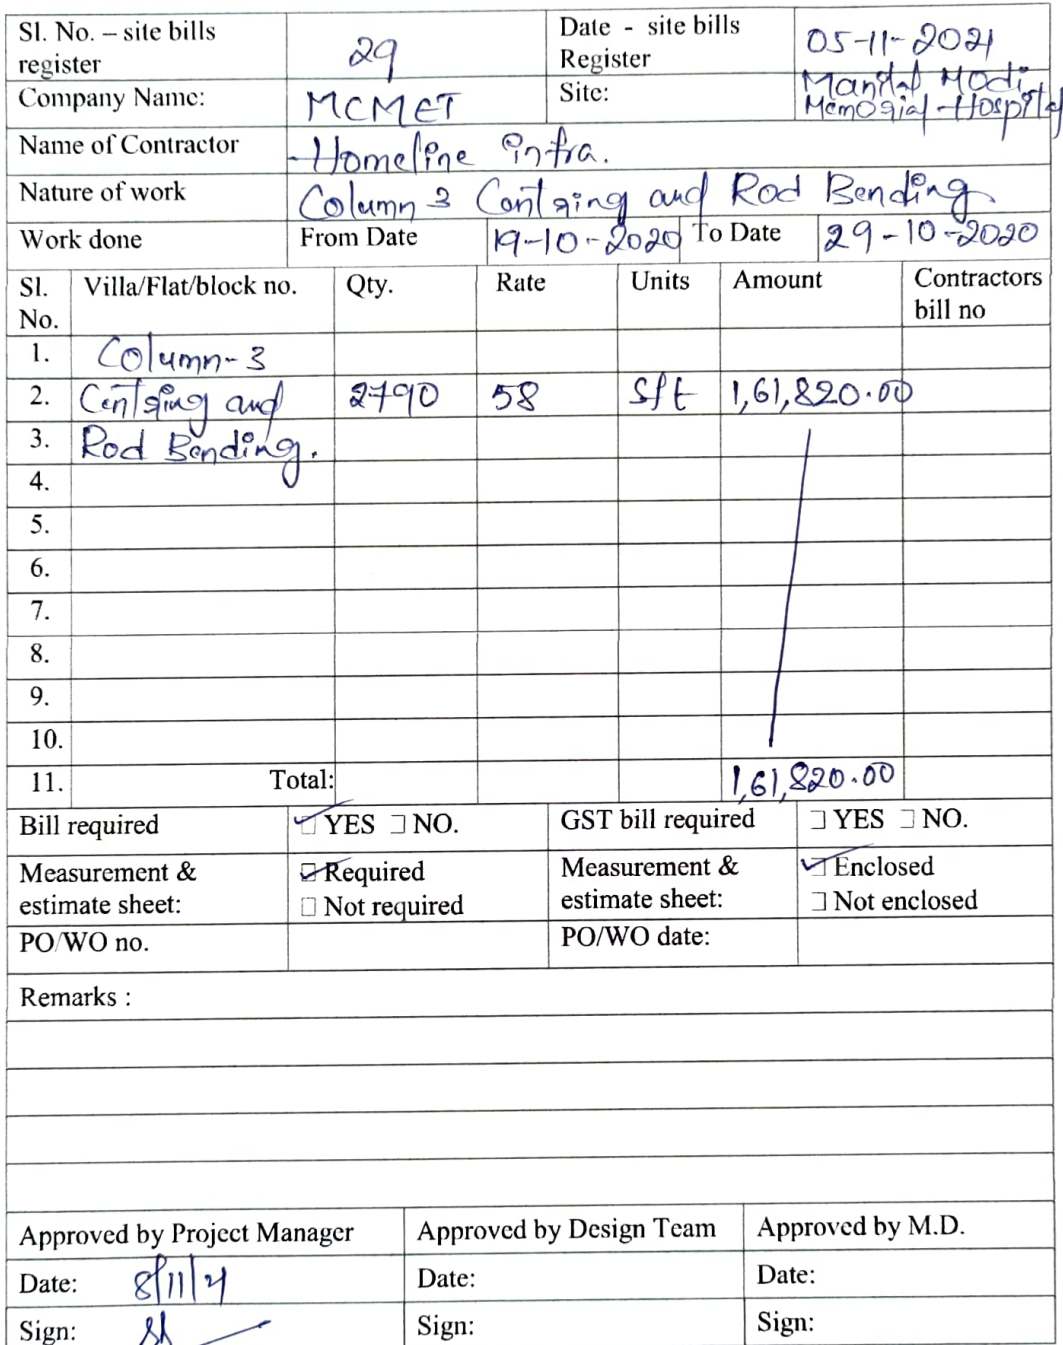 Sl. No. – site bills register 29 Date - site bills Register 05-11-2021
Company Name: MCMET Site: Manilal Modi Memorial Hospital
Name of Contractor Homeline infra.
Nature of work Column 3 Centring and Rod Bending
Work done From Date 19-10-2020 To Date 29-10-2020
Sl. No. Villa/Flat/block no. Qty. Rate Units Amount Contractors bill no
1. Column-3
2. Centring and 2790 58 Sft 1,61,820.00
3. Rod Bending.
4.
5.
6.
7.
8.
9.
10.
11. Total: 1,61,820.00
Bill required YES NO. GST bill required YES NO.
Measurement & estimate sheet: Required Not required Measurement & estimate sheet: Enclosed Not enclosed
PO/WO no. PO/WO date:
Remarks :
Approved by Project Manager Approved by Design Team Approved by M.D.
Date: 8/11/21 Date: Date:
Sign: Sign: Sign: